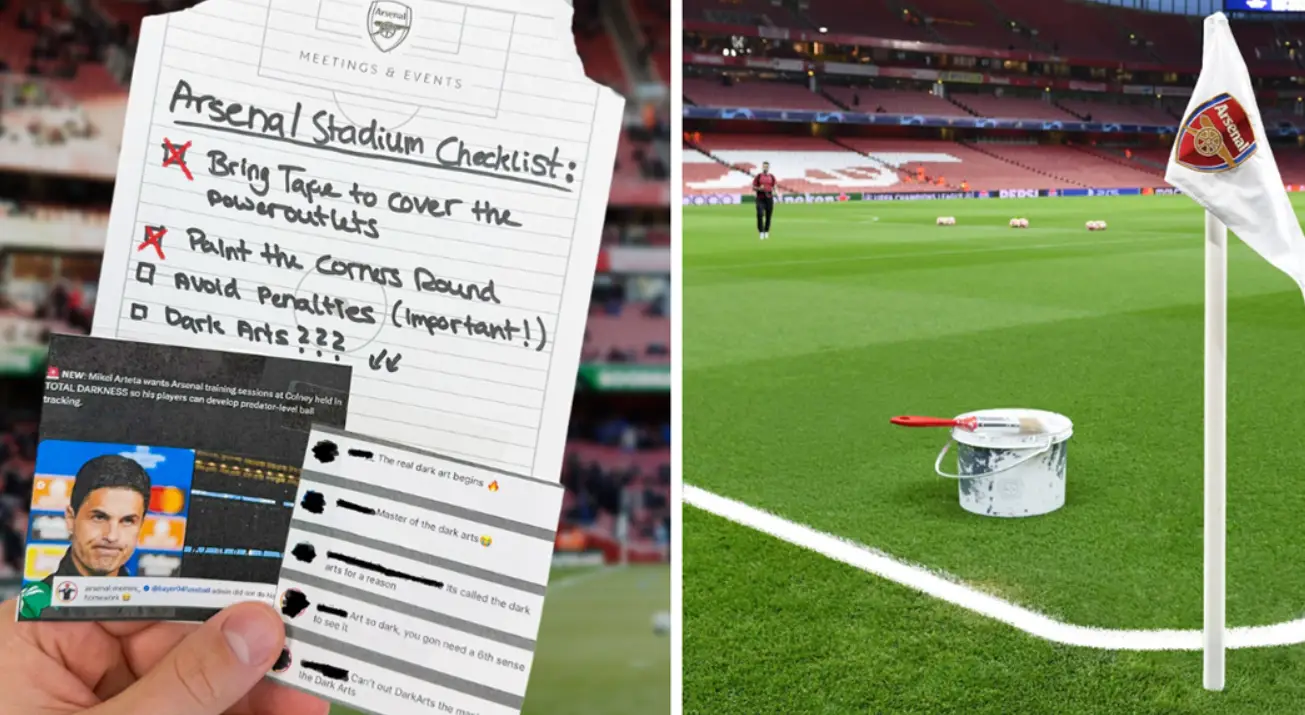 Arsenal
MEETINGS & EVENTS
Arsenal Stadium Checklist:
Bring Tape to cover the
poweroutlets
Paint the Corners Round
Avoid Penalties (important!)
Dark Arts???
NEW: Mikel Arteta wants Arsenal training sessions at Colney held in
TOTAL DARKNESS so his players can develop predator-level ball
tracking.
arsenal.memes_ @bayer04fussball admin did not do his
homework
The real dark art begins 🔥
Master of the dark arts😂
Its called the dark
arts for a reason
Art so dark, you gon need a 6th sense
to see it
Can't out DarkArts the
the Dark Arts
Arsenal
PEPSI